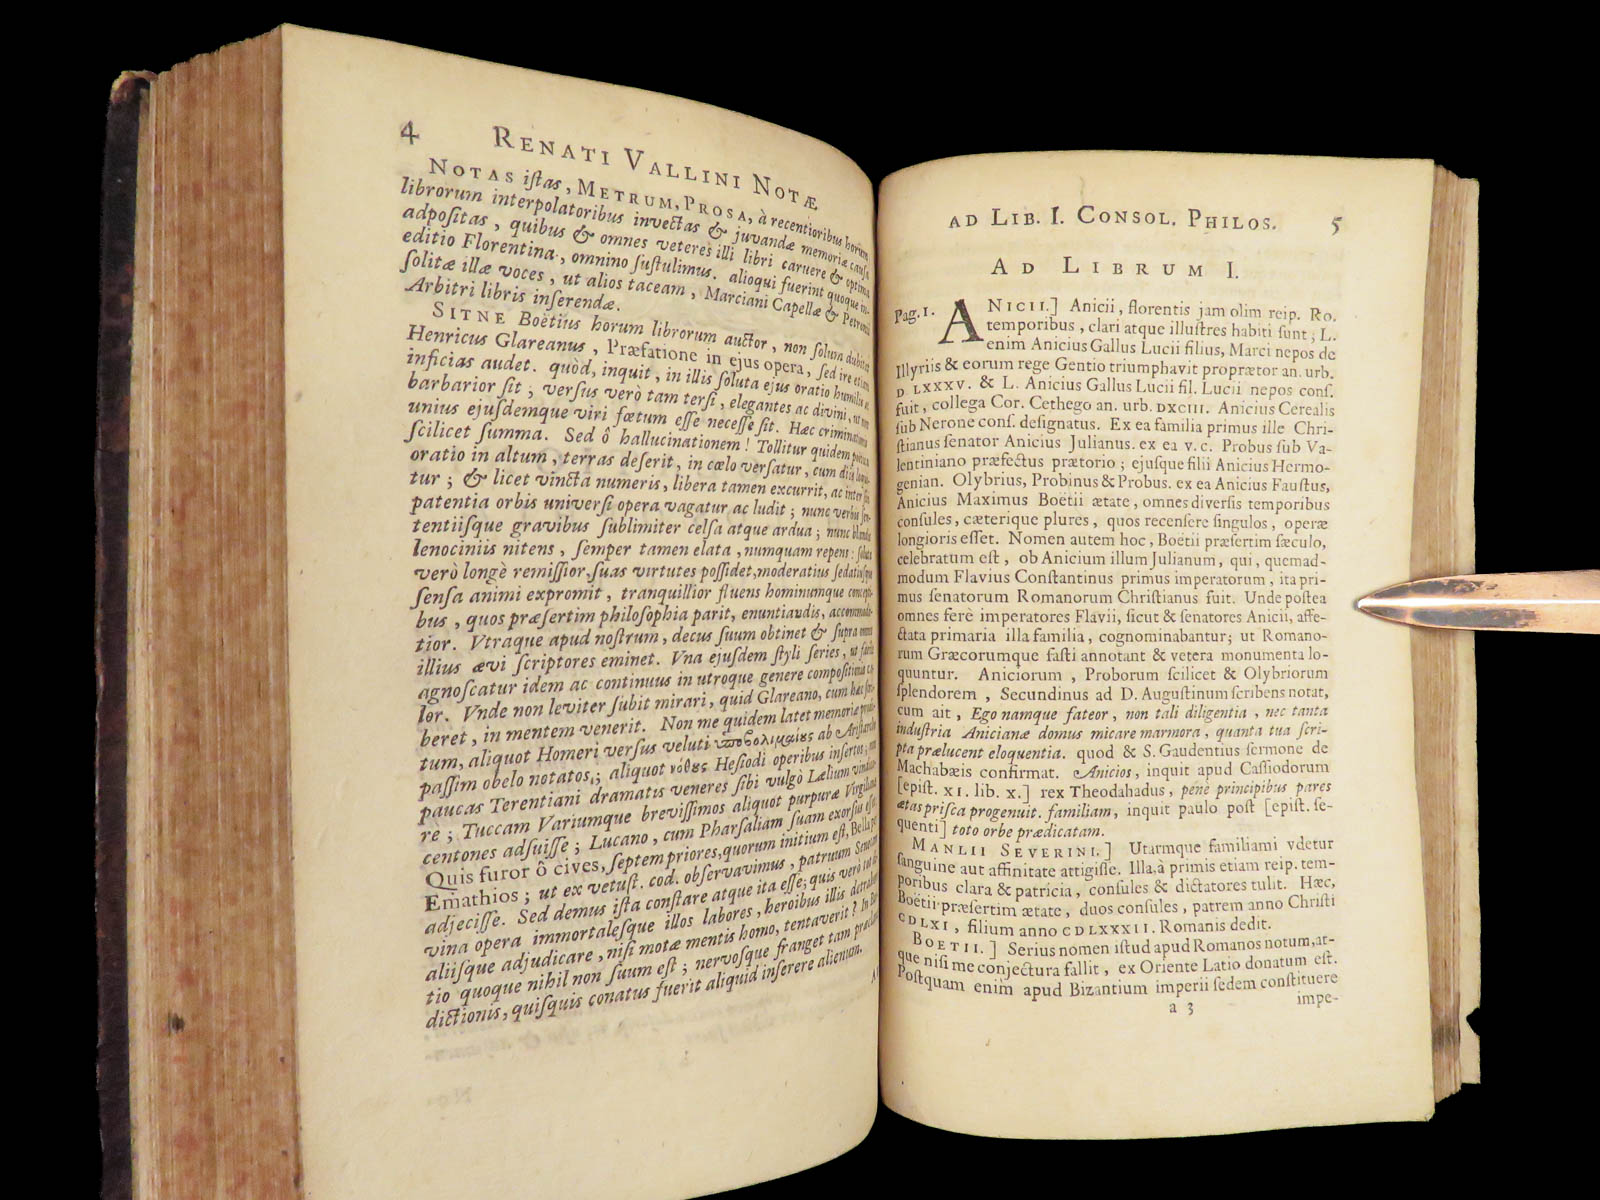 4 RENATI VALLINI NOTÆ
NOTAS iſtas, METRUM, PROSA, à recentioribus horum
librorum interpolatoribus invectas & juvandæ memoriæ cauſa
adpoſitas, quibus & omnes veteres illi libri caruere & optima
editio Florentina, omnino ſuſtulimus. alioqui fuerint quoque in-
ſolitæ illæ voces, ut alios taceam, Marciani Capellæ & Petronii
Arbitri libris inſerendæ.
SITNE Boëtius horum librorum auctor, non ſolum dubitat
Henricus Glareanus, Præfatione in ejus opera, ſed ire etiam
inficias audet. quòd, inquit, in illis ſoluta ejus oratio humilis &
barbarior ſit; verſus verò tam terſi, elegantes ac divini, ut non
unius ejuſdemque viri fœtum eſſe neceſſe ſit. Hæc criminationis
ſcilicet ſumma. Sed ô hallucinationem! Tollitur quidem poëtica
oratio in altum, terras deſerit, in cœlo verſatur, cum diis loqui-
tur; & licet vincta numeris, libera tamen excurrit, ac inter
patentia orbis univerſi opera vagatur ac ludit; nunc verbis ſen-
tentiiſque gravibus ſublimiter celſa atque ardua; nunc blandis
lenociniis nitens, ſemper tamen elata, numquam repens: ſoluta
verò longè remiſſior ſuas virtutes poſſidet, moderatius ſedatiuſque
ſenſa animi expromit, tranquillior fluens hominumque concepti-
bus, quos præſertim philoſophia parit, enuntiandis, accommoda-
tior. Vtraque apud noſtrum, decus ſuum obtinet & ſupra omnes
illius ævi ſcriptores eminet. Vna ejuſdem ſtyli ſeries, ut facile
agnoſcatur idem ac continuus in utroque genere compoſitionis co-
lor. Vnde non leviter ſubit mirari, quid Glareano, cum hæc ſcri-
beret, in mentem venerit. Non me quidem latet memoriæ prodi-
tum, aliquot Homeri verſus veluti ὑποβολιμαίους ab Ariſtarcho
paſſim obelo notatos; aliquot νόθους Heſiodi operibus inſertos; non
paucas Terentiani dramatis veneres ſibi vulgò Lælium vindica-
re; Tuccam Variumque breviſſimos aliquot purpuræ Virgilianæ
centones adſuiſſe; Lucano, cum Pharſaliam ſuam exorſus eſſet,
Quis furor ô cives, ſeptem priores, quorum initium eſt, Bella per
Emathios; ut ex vetuſt. cod. obſervavimus, patruum Senecam
adjeciſſe. Sed demus iſta conſtare atque ita eſſe; quis verò tot di-
vina opera immortaleſque illos labores, heroibus illis detrahere
aliiſque adjudicare, niſi motæ mentis homo, tentaverit? In
tio quoque nihil non ſuum eſt; nervoſque franget tam præclaræ
dictionis, quiſquis conatus fuerit aliquid inſerere alienum.
AD LIB. I. CONSOL. PHILOS. 5
AD LIBRUM I.
Pag. 1. ANICII.] Anicii, florentis jam olim reip. Ro.
temporibus, clari atque illuſtres habiti ſunt; L.
enim Anicius Gallus Lucii filius, Marci nepos de
Illyriis & eorum rege Gentio triumphavit proprætor an. urb.
DLXXXV. & L. Anicius Gallus Lucii fil. Lucii nepos conſ.
fuit, collega Cor. Cethego an. urb. DXCIII. Anicius Cerealis
ſub Nerone conſ. deſignatus. Ex ea familia primus ille Chri-
ſtianus ſenator Anicius Julianus. ex ea v. c. Probus ſub Va-
lentiniano præfectus prætorio; ejuſque filii Anicius Hermo-
genian. Olybrius, Probinus & Probus. ex ea Anicius Fauſtus,
Anicius Maximus Boëtii ætate, omnes diverſis temporibus
conſules, cæterique plures, quos recenſere ſingulos, operæ
longioris eſſet. Nomen autem hoc, Boëtii præſertim ſæculo,
celebratum eſt, ob Anicium illum Julianum, qui, quemad-
modum Flavius Conſtantinus primus imperatorum, ita pri-
mus ſenatorum Romanorum Chriſtianus fuit. Unde poſtea
omnes ferè imperatores Flavii, ſicut & ſenatores Anicii, affe-
ctata primaria illa familia, cognominabantur; ut Romano-
rum Græcorumque faſti annotant & vetera monumenta lo-
quuntur. Aniciorum, Proborum ſcilicet & Olybriorum
ſplendorem, Secundinus ad D. Auguſtinum ſcribens notat,
cum ait, Ego namque fateor, non tali diligentia, nec tanta
induſtria Anicianæ domus micare marmora, quanta tua ſcri-
pta prælucent eloquentia. quod & S. Gaudentius ſermone de
Machabæis confirmat. Anicios, inquit apud Caſſiodorum
[epiſt. XI. lib. X.] rex Theodahadus, penè principibus pares
ætas priſca progenuit. familiam, inquit paulo poſt [epiſt. ſe-
quenti] toto orbe prædicatam.
MANLII SEVERINI.] Utramque familiami vdetur
ſanguine aut affinitate attigiſſe. Illa, à primis etiam reip. tem-
poribus clara & patricia, conſules & dictatores tulit. Hæc,
Boëtii præſertim ætate, duos conſules, patrem anno Chriſti
CDLXI, filium anno CDLXXXII. Romanis dedit.
BOETII.] Serius nomen iſtud apud Romanos notum, at-
que niſi me conjectura fallit, ex Oriente Latio donatum eſt.
Poſtquam enim apud Bizantium imperii ſedem conſtituere
a 3 impe-